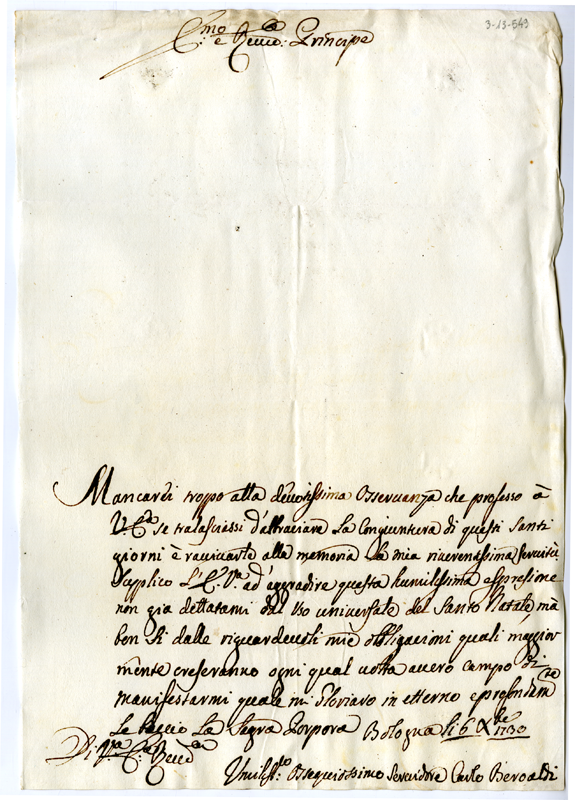 3-13-549
E.mo e Rev.mo: Principe
Mancarei troppo alla devotissima Osservanza che professo à
V. E.za se tralasciassi d'abbraciare La Congiuntura di questi Santi
giorni è ravivarle alla memoria La mia riverentissima servitù
Supplico L'E. V.a ad'aggradire questa humilissima espressione
non già dettatami dal uso universale del Santo Natale, mà
ben si dalle riguardevoli mie obbligacioni quali maggior
mente creseranno ogni qual volta avero campo di
manifestarmi quale mi Gloriaro in etterno e profondam.te
Le baccio La Sagra Porpora Bologna li 6 Xbre 1730
Di V.ra E: Rev.
Umiliss.mo Ossequiosissimo Servidore Carlo Beroaldi